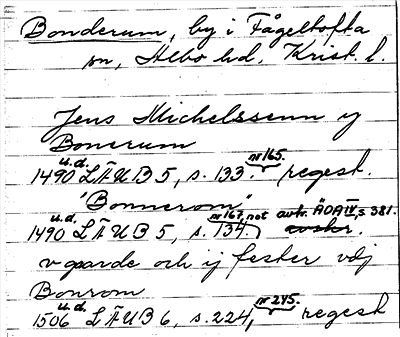 Bonderum, by i Fågeltofta
sn, Albo hd, Krist. l.
Jens Michelssenn y
Bonerum
1490 u.d. LÄUB 5, s. 133. nr 165. regest.
"Bonnerom"
1490 u.d. LÄUB 5, s. 134. nr 167, not avtr. ÄDA IV, s 381.
v garde och ij fester vdj
Bonrom
1506 u.d. LÄUB 6, s. 224, nr 245. regest